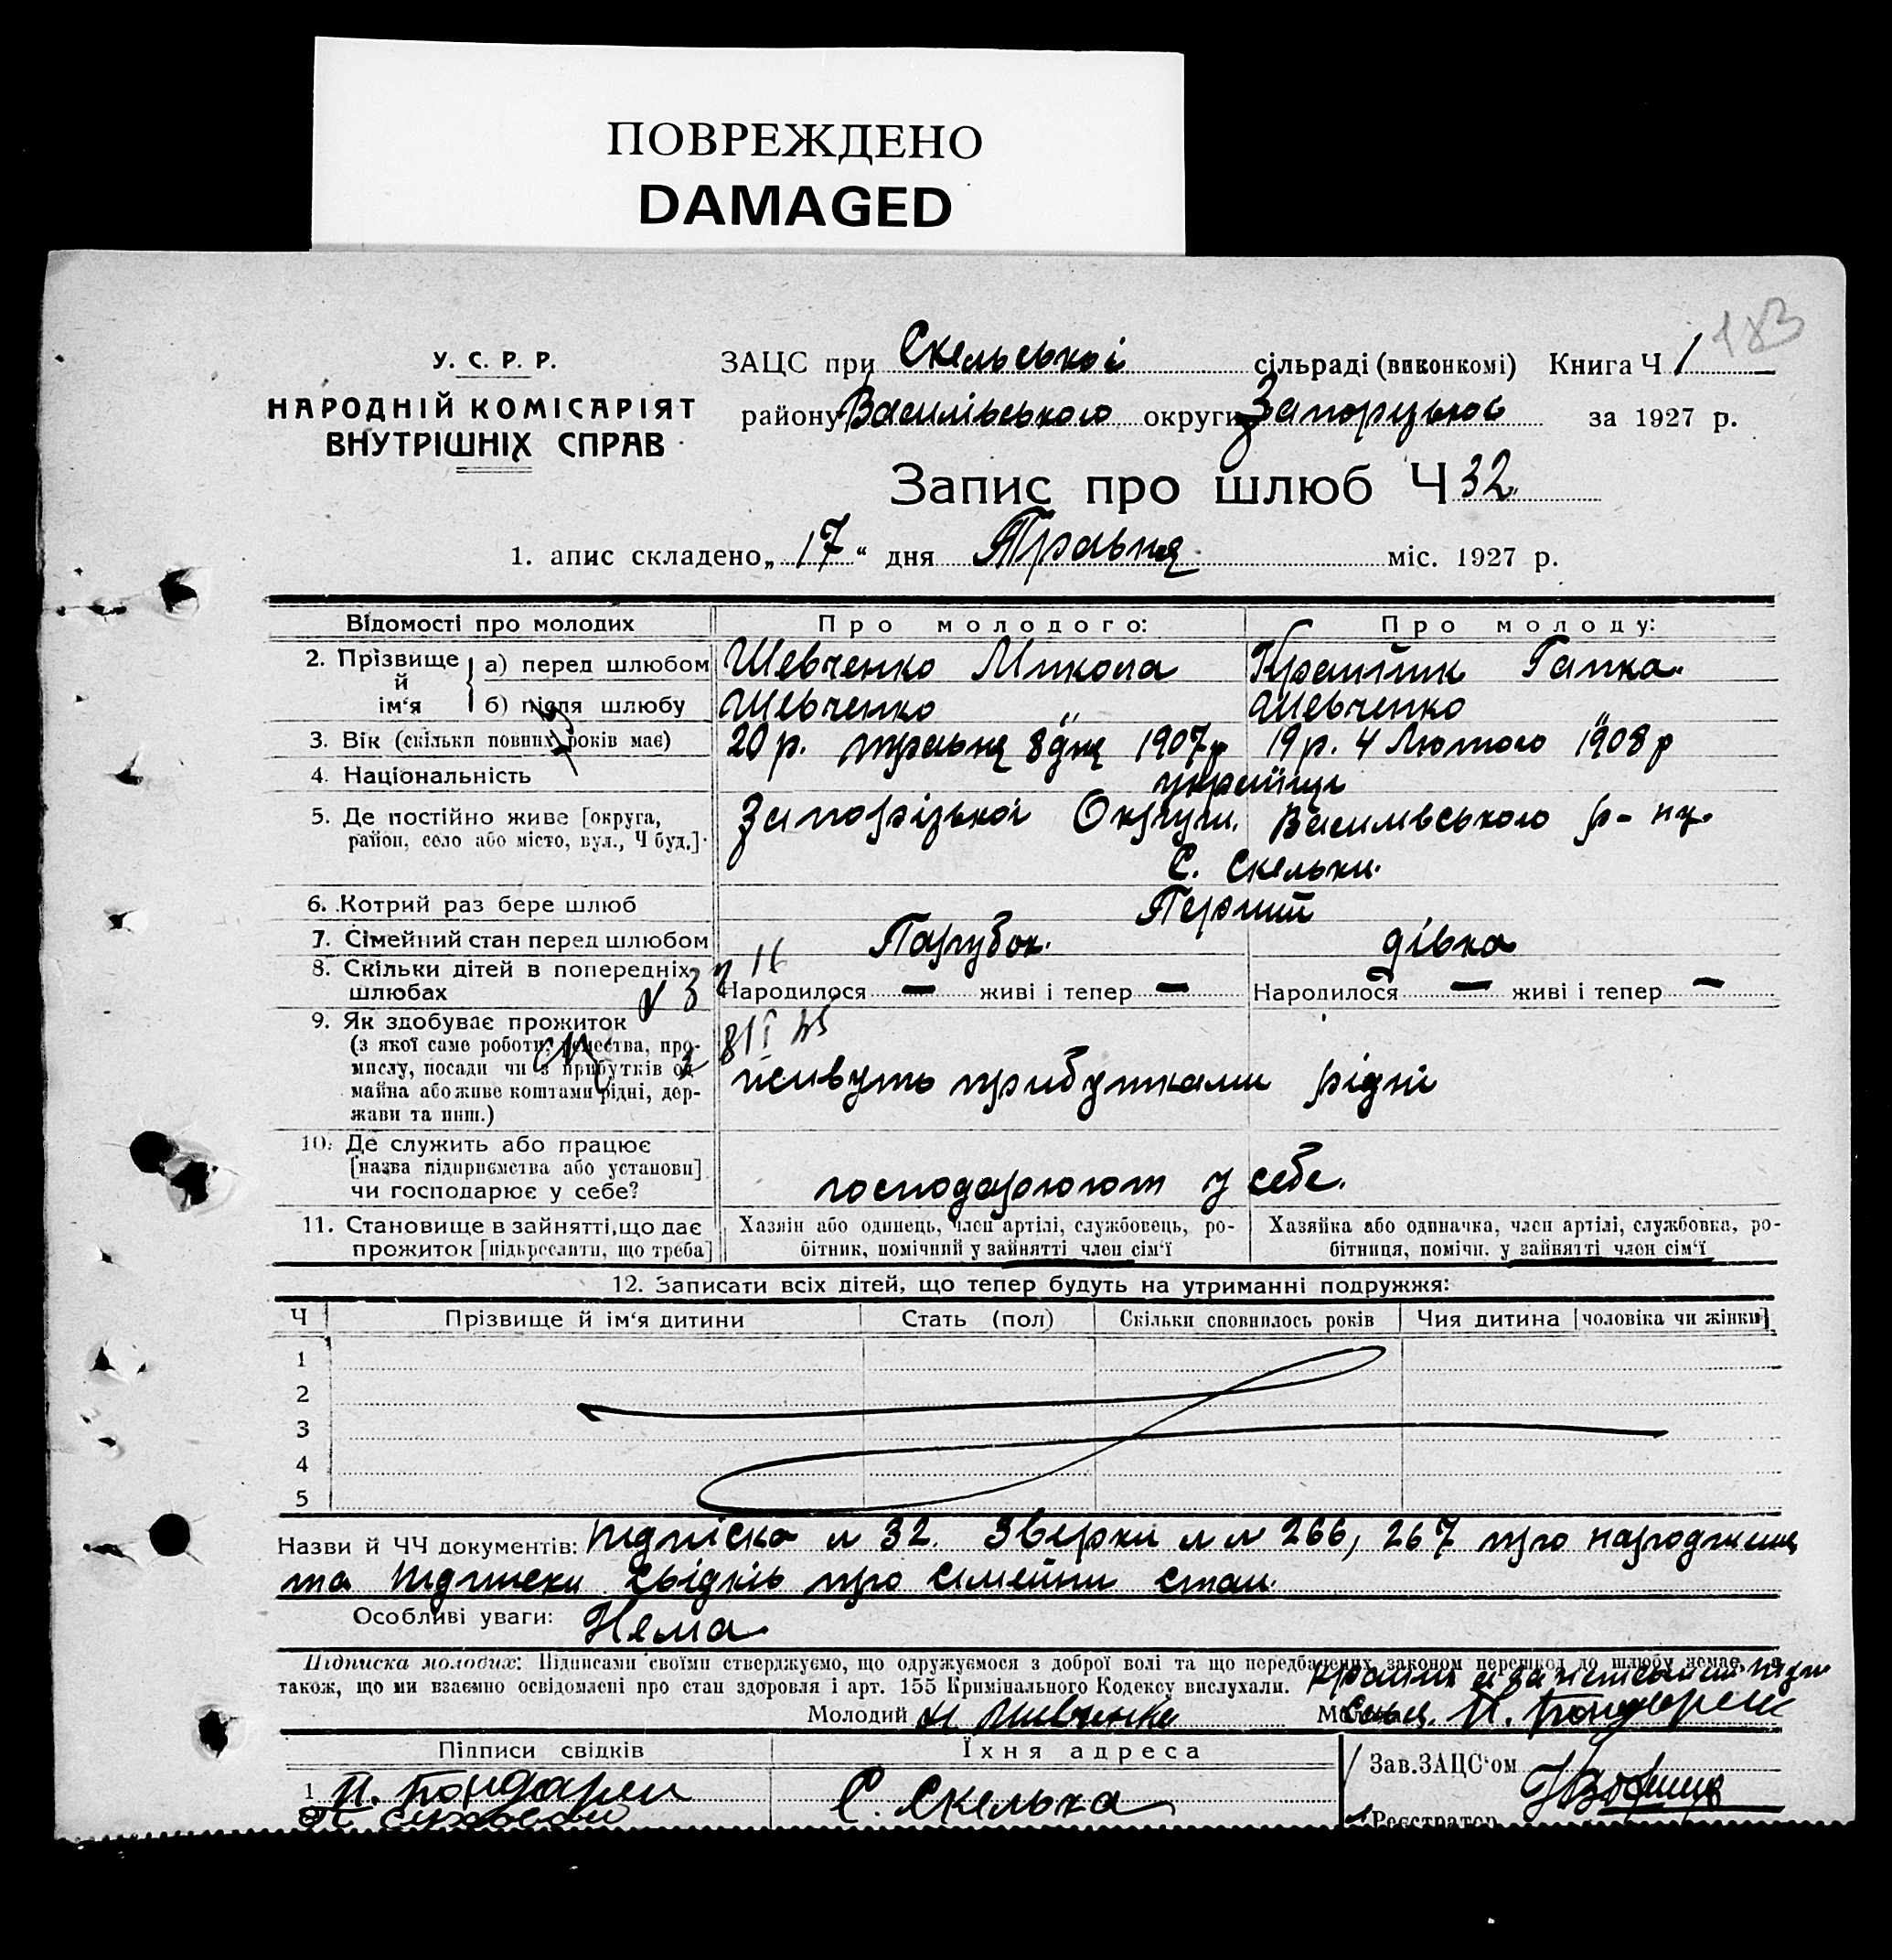 ПОВРЕЖДЕНО
DAMAGED
183
У. С. Р. Р.
НАРОДНІЙ КОМІСАРІЯТ
ВНУТРІШНІХ СПРАВ
ЗАЦС при Скельської сільраді (виконкомі) Книга Ч 1
району Василівського округи за 1927 р.
Запис про шлюб Ч 32
1. апис складено „ 17 “ дня Травня міс. 1927 р.
Відомості про молодих Про молодого: Про молоду:
2. Прізвище й ім‘я а) перед шлюбом Шевченко Микола Гапка
б) після шлюбу Шевченко " Шевченко "
3. Вік (скільки повних років має) 20 р. травня 8 дня 1907 р 19 р. 4 Лютого 1908 р
4. Національність українці
5. Де постійно живе [округа, район, село або місто, вул., Ч буд.] Запорізької Округи. Василівського р-ну.
С. Скельки.
6. Котрий раз бере шлюб Перший
7. Сімейний стан перед шлюбом Парубок. дівка
8. Скільки дітей в попередніх шлюбах Народилося — живі і тепер — Народилося — живі і тепер —
9. Як здобуває прожиток
(з якої саме роботи, ремества, про-
мислу, посади чи з прибутків од
майна або живе коштами рідні, дер-
жави та инш.)
живуть прибутками рідні
10. Де служить або працює
[назва підприємства або установи]
чи господарює у себе?
господарюют у себе.
11. Становище в зайнятті, що дає
прожиток [підкреслити, що треба]
Хазяїн або одинець, член артілі, службовець, ро-
бітник, помічний у зайнятті член сім‘ї
Хазяйка або одиначка, член артілі, службовка, ро-
бітниця, помічн. у зайнятті член сім‘ї
12. Записати всіх дітей, що тепер будуть на утриманні подружжя:
Ч Прізвище й ім‘я дитини Стать (пол) Скільки сповнилось років Чия дитина [чоловіка чи жінки]
1
2
3
4
5
Назви й ЧЧ документів: Підписка № 32. Зверки №№ 266, 267 про народження
та підписки свідків про сімейни стан.
Особливі уваги: Нема
Підписка молодих: Підписами своїми стверджуємо, що одружуємося з доброї волі та що передбачених законом перешкод до шлюбу немає, а
також, що ми взаємно освідомлені про стан здоровля і арт. 155 Кримінального Кодексу вислухали.
Молодий М Шевченко
Підписи свідків Їхня адреса Зав. ЗАЦС‘ом
1 П. Бондарен С. Скелька
Реєстратор